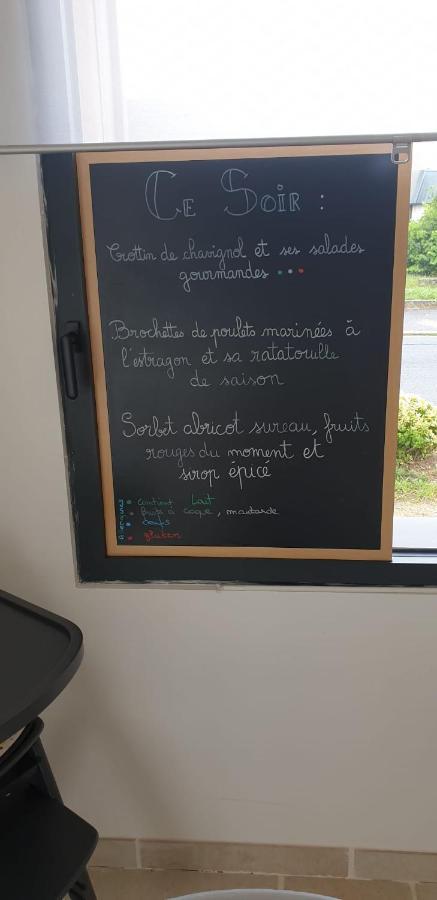 Ce Soir :
Crottin de chavignol et ses salades
gourmandes • • •
Brochettes de poulets marinées à
l'estragon et sa ratatouille
de saison
Sorbet abricot sureau, fruits
rouges du moment et
sirop épicé
• contient lait
• fruits à coque, moutarde
• oeufs
• gluten